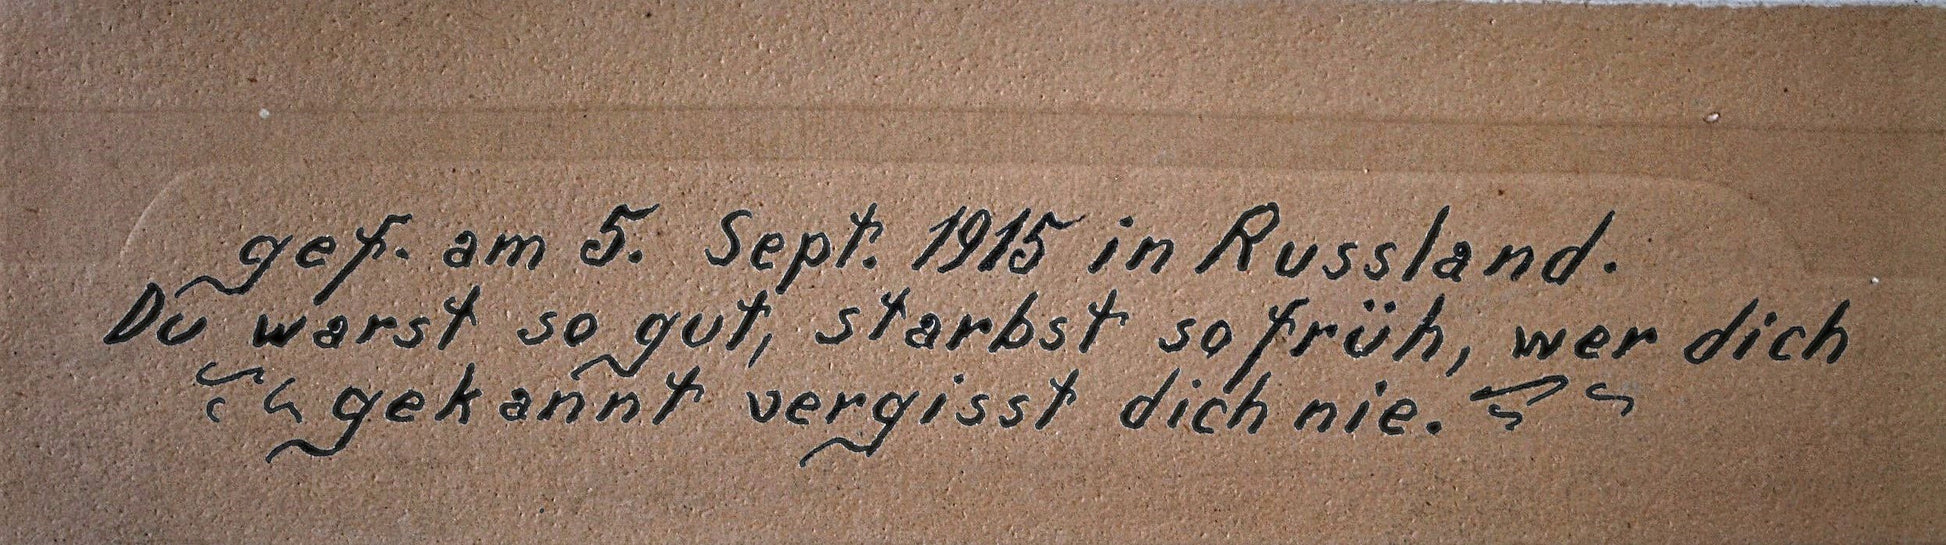 gef. am 5. Sept. 1915 in Russland.
Du warst so gut, starbst so früh, wer dich
gekannt vergisst dich nie.